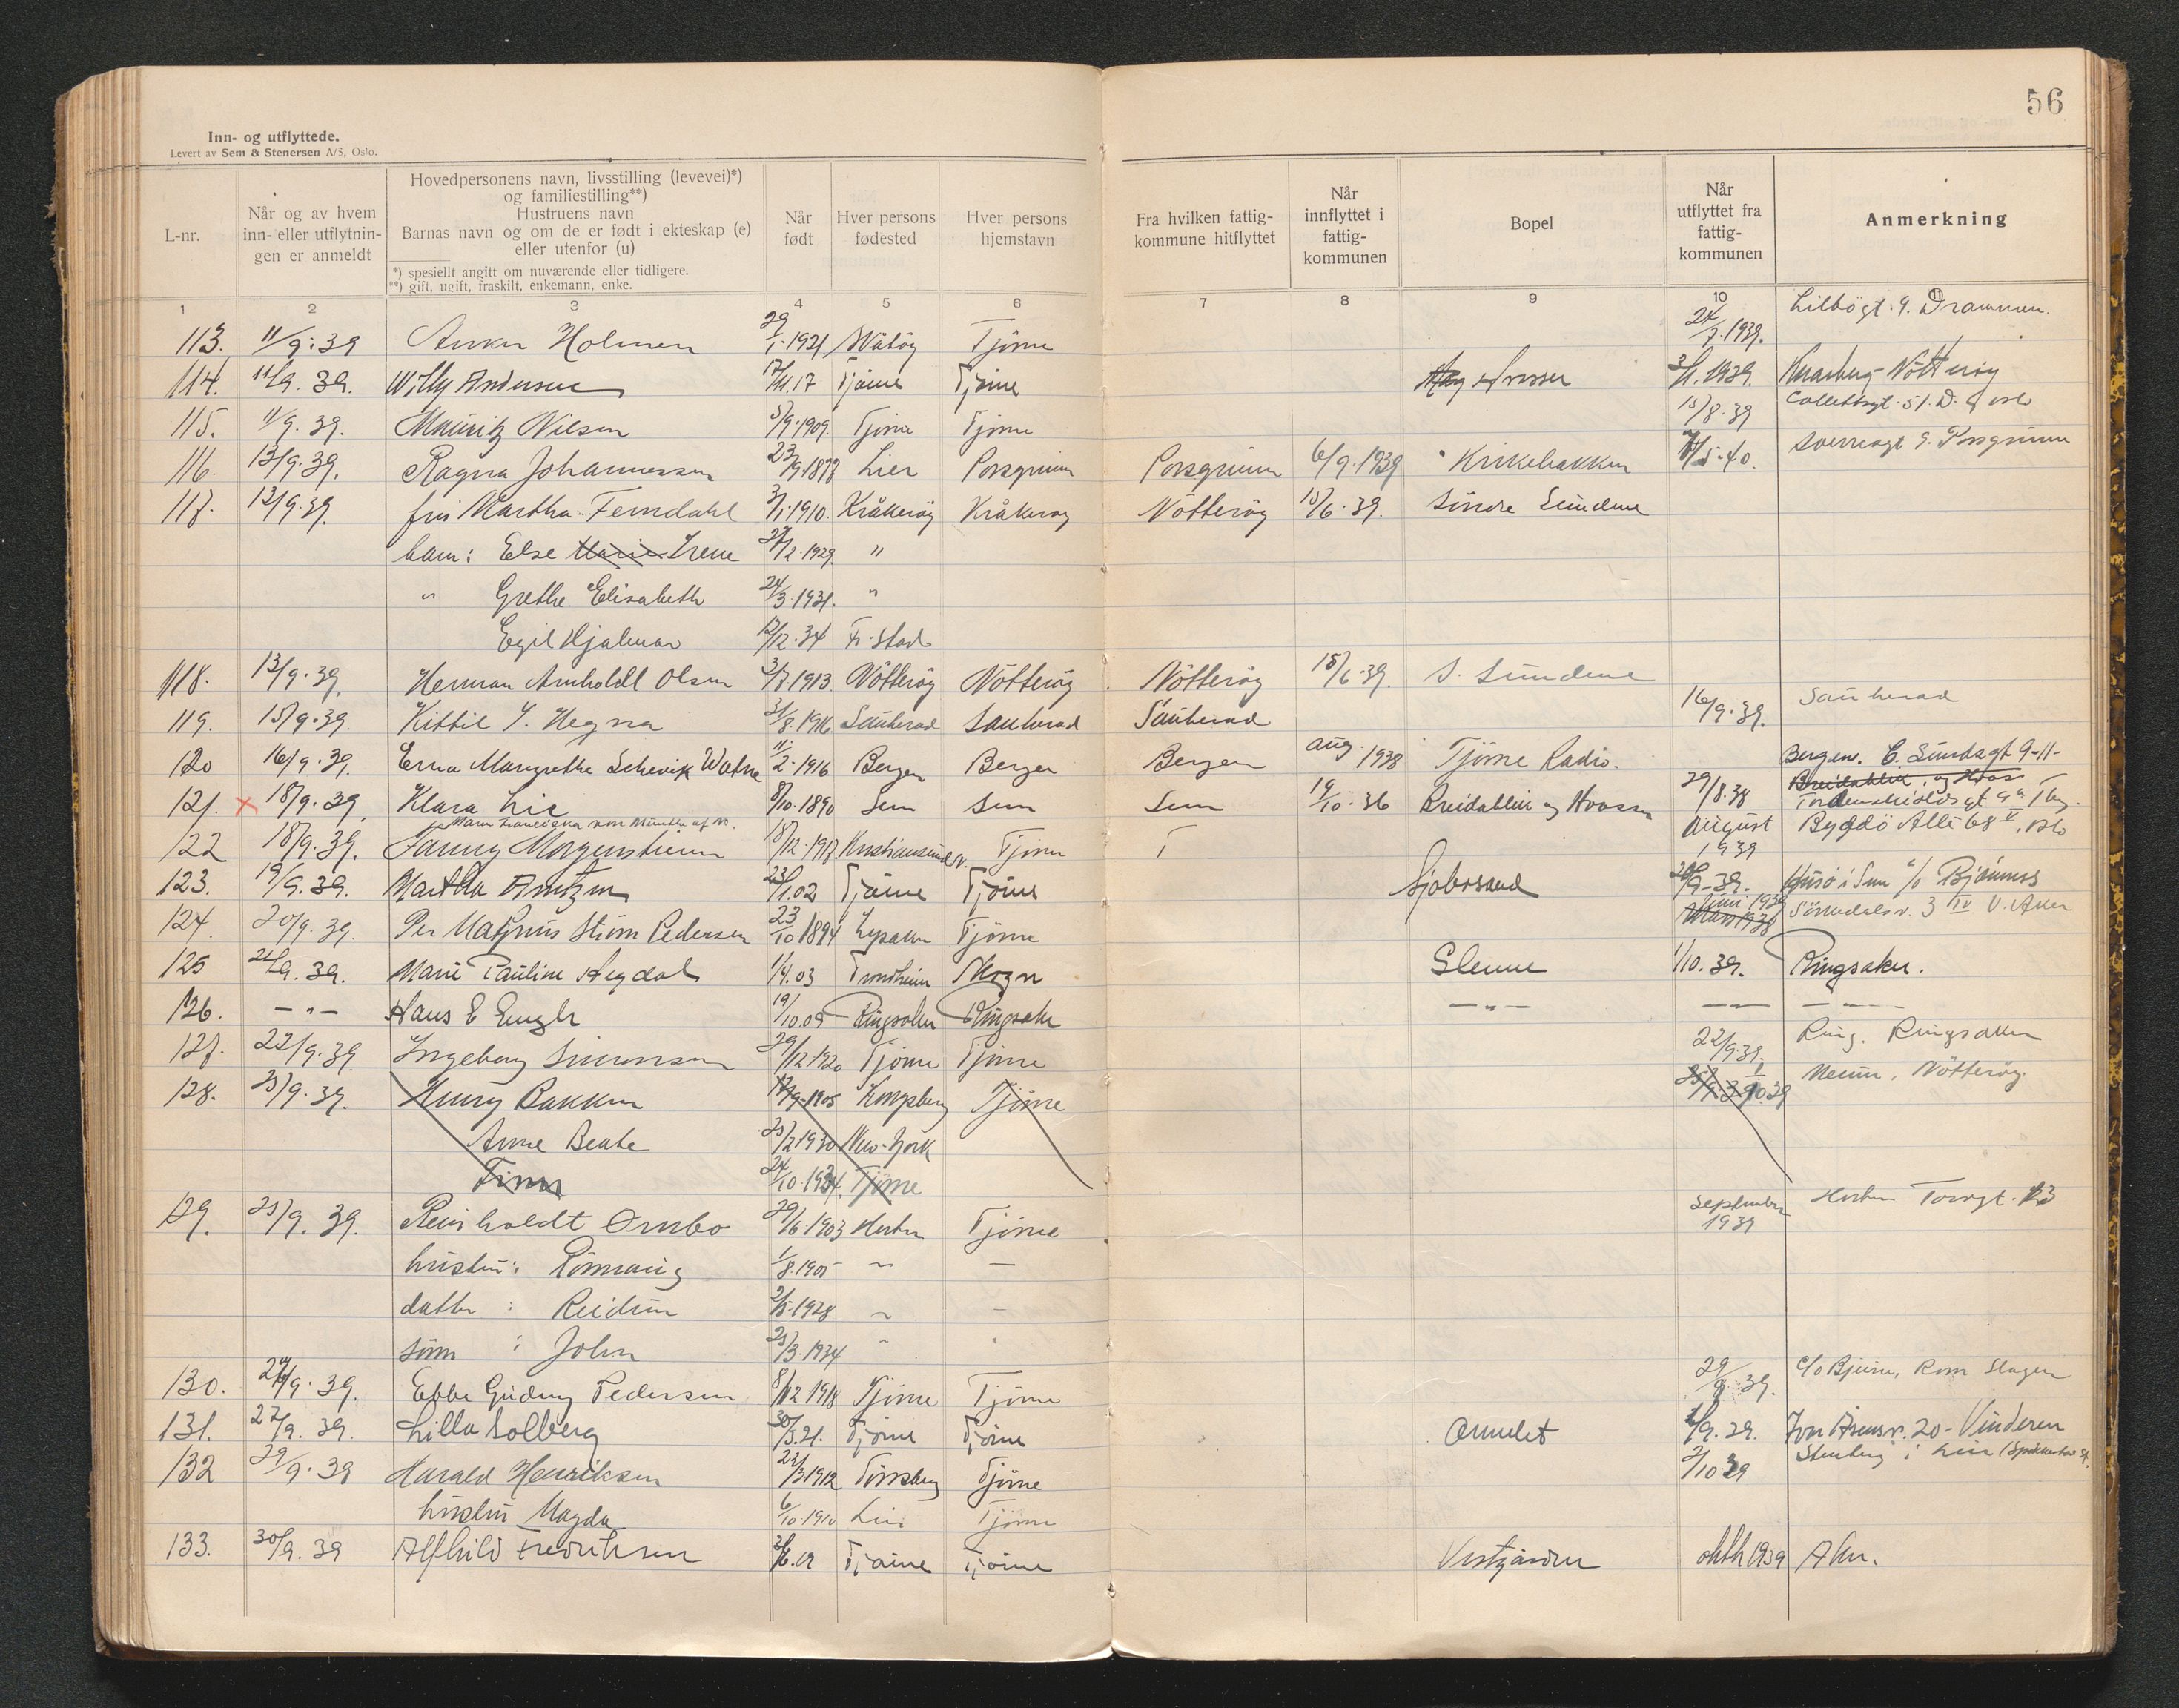 56
Inn- og utflyttede.
Levert av Sem & Stenersen A/S, Oslo.
L-nr.
Når og av hvem inn- eller utflytnin- gen er anmeldt
Hovedpersonens navn, livsstilling (levevei)*)
og familiestilling**)
Hustruens navn
Barnas navn og om de er født i ekteskap (e)
eller utenfor (u)
*) spesiellt angitt om nuværende eller tidligere.
**) gift, ugift, fraskilt, enkemann, enke.
Når født
Hver persons fødested
Hver persons hjemstavn
Fra hvilken fattig- kommune hitflyttet
Når innflyttet i fattig- kommunen
Bopel
Når utflyttet fra fattig- kommunen
Anmerkning
1 2 3 4 5 6 7 8 9 10 11
113. 11/9.39 Holmen 29/1.1921 Tjöme 24/7.1939. Drammen.
114. 11/9.39. Willy Andersen 17/11.17 Tjöme Tjöme 3/1.1939. Nötteröy
115. 11/9.39. Mauritz Nilsen 5/9.1909. Tjöme Tjöme 15/8.39 Collettsgt. 51.D. Oslo
116. 13/9.39. Ragna Johannessen 23/9.1877 Lier Porsgrunn Porsgrunn 6/9.1939 Krikebakken /5.40. Sverresgt 9. Porsgrunn
117. 13/9.39. fru Martha Ferndahl 3/1.1910. Kråkeröy Kråkeröy Nötteröy 15/6.39. Söndre Sundene
barn: Else Marie Irene 27/2.1929. "
" Grethe Elisabeth 24/3.1931. "
Egil Hjalmar 12/12.34 Fr.stad
118. 13/9.39. Herman Arnholdt Olsen 3/7.1913 Nötteröy Nötteröy Nötteröy 15/6.39. S. Sundene
119. 15/9.39. Kittil Hegna 31/8.1916 Sauherad Sauherad Sauherad 16/9.39. Sauherad
120 16/9.39. Erna Margrethe Schevik Watne 11/2.1916 Bergen Bergen Bergen aug. 1938 Tjöme Radio. Bergen. C. Sundsgt 9-11-
121. x 18/9.39 Klara Lie 8/10.1890 Sem Sem Sem 19/10.36 Breidablik og Hvasser 29/8.38 Breidablik, og Hvas
Tordenskiolds gt 9a Tbg.
122 18/9.39. Fanny Morgenstierne 18/12.1917 Kristiansund N. Tjöme T August 1939 Bygdö Allé 68 V, Oslo
123. 19/9.39. Martha Arntzen 23/1.02 Tjöme Tjöme Sjöbosand 20/9-39. Husö i Sem c/o Bjönnes
124. 20/9.39. Per Magnus Strøm Pedersen 23/10.1894 Lysaker Tjöme juni 1938 Mars 1938 Sörkedalsv. 3 IV. V. Aker
125 21/9.39. Marie Pauline Hegdal 1/4.03 Trondheim Glenne 1/10.39. Ringsaker.
126. — " — Hans E Engh 19/10.09 Ringsaker Ringsaker — " — — " — — " —
127. 22/9.39. Ingeborg Simonsen 29/12 1920 Tjöme Tjöme 22/9.39. Ring. Ringsaker
128. 25/9.39. Henry Bakken 17/9.1905 Kongsberg Tjöme 25/9.39 1/10.39 Nötteröy.
Anne Beate 25/2 1930 New-York
Finn 24/10.1934. Tjöme
129. 25/9.39. Reinholdt Ornbo 29/6.1903 Horten Tjöme September 1939 Horten Torvgt. 23
hustru: Rönnaug 1/8.1905 — " —
datter: Reidun 2/5.1928
sönn: John 25/3.1934
130. 26/9.39. Ebba Gudny Pedersen 8/12 1918 Tjöme Tjöme 29/9.39. c/o Bjune, Rom Slagen
131. 27/9.39. Lilla Solberg 30/5.21. Tjöme Tjöme Ormelet 1/9.39. Jon Aasensv. 20 - Vinderen
132 29/9.39 Harald Henriksen 23/3.1912 Tönsberg Tjöme 2/10.39 Stenberg i Lier
hustru Magda 6/10.1910 Lier Tjöme
133. 30/9.39 Alfhild Fredriksen Tjöme Tjöme Vestgården oktb 1939 Aker.